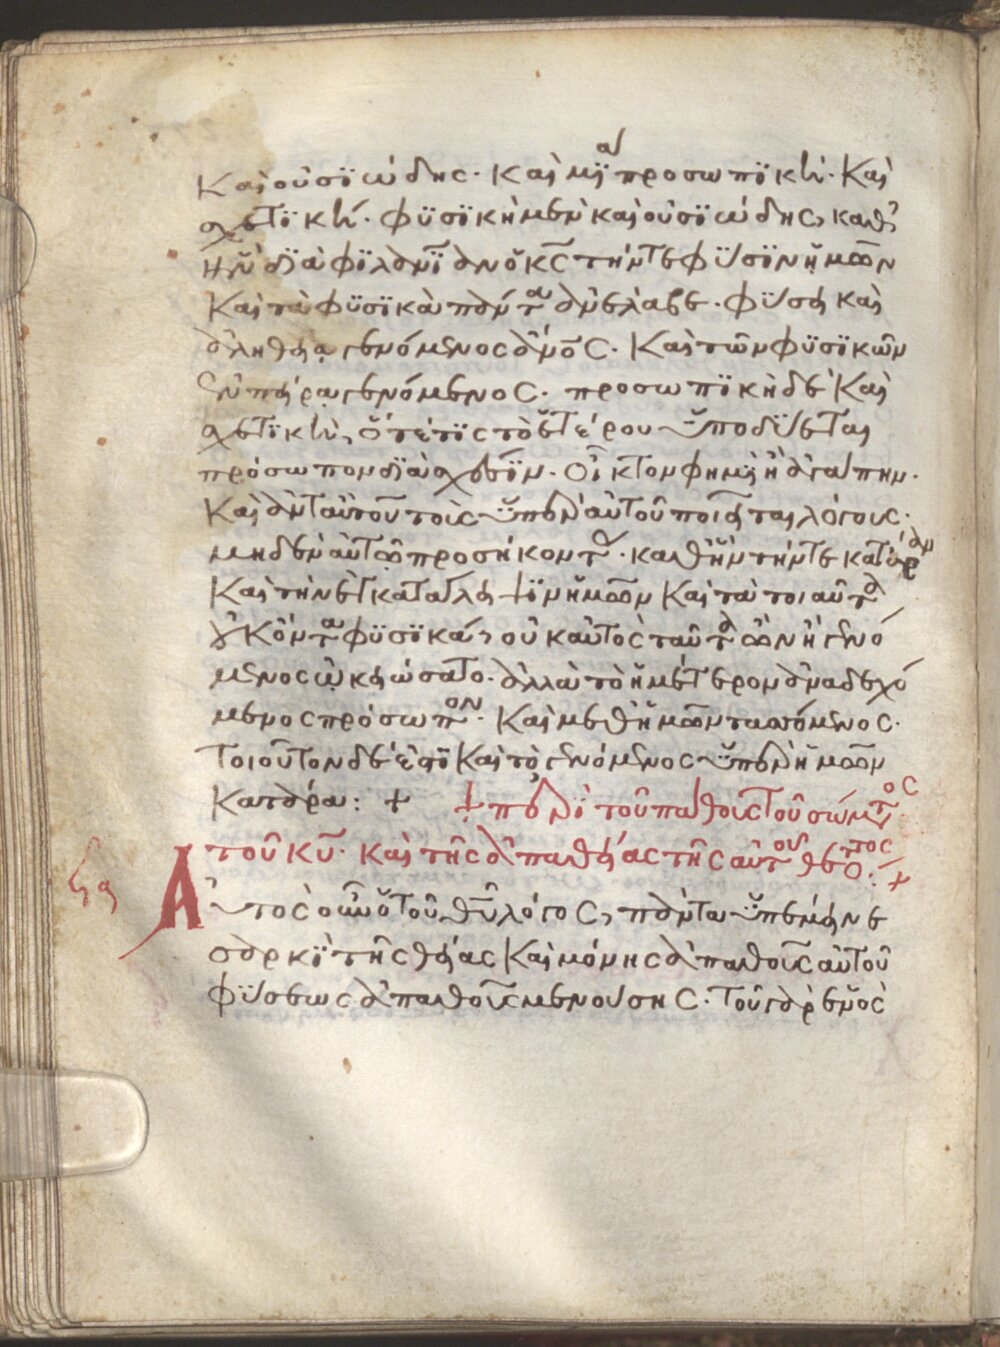 καὶ οὐσϊώδης· καὶ μϊ̈α προσωπϊκὴ· καὶ
σχετϊκή· φϋσϊκὴ μὲν καὶ οὐσϊώδης, καθ'
ἣν δϊὰ φϊλανι̅αν ὁ κ̅ς τήν τε φϋσϊν ἡμῶν
καὶ τὰ φϋσϊκὰ πάντα ἀνέλαβε· φϋσει καὶ
ἀληθείᾳ γενόμενος ἄνο̅ς· καὶ τῶν φϋσϊκῶν
ἐν πείρᾳ γενόμενος· προσωπϊκὴ δὲ καὶ
σχετϊκὴ, ὅτέ τϊς τὸ ἑτέρου ὑποδϋεται
πρόσωπον δϊὰ σχέσϊν· οἶκτον φημῒ ἢ ἀγάπην·
καὶ ἀντ' αὐτοῦ τοὺς ὑπὲρ αὐτοῦ ποιεῖται λόγους·
μηδὲν αὐτῶ προσήκοντα· καθ' ἣν τήν τε κατάραν
καὶ τὴν ἐγκατάλειψϊν ἡμῶν καὶ τὰ τοιαῦτα
οὐκ ὄντα φϋσϊκά, οὐκ αὐτὸς ταῦτα ὢν ἢ γενό
μενος ὠκειώσατο· ἀλλὰ τὸ ἡμέτερον ἀναδεχό
μενος πρόσωπον· καὶ μεθ' ἡμῶν τασσόμενος·
τοιοῦτον δέ ἐστϊ καὶ τὸ γενόμενος ὑπὲρ ἡμῶν
κατάρα: + + περὶ τοῦ πάθους τοῦ σώματος
τοῦ κ̅υ· καὶ τῆς ἀπαθείας τῆς αὐτοῦ θεότητος: +
Αὐτὸς οὖν ὁ τοῦ θ̅υ λόγος, πάντα ὑπέμεινε
σαρκῒ τῆς θείας καὶ μόνης ἀπαθοῦς αὐτοῦ
φϋσεως ἀπαθοῦς μενούσης· τοῦ γὰρ ἑνὸς